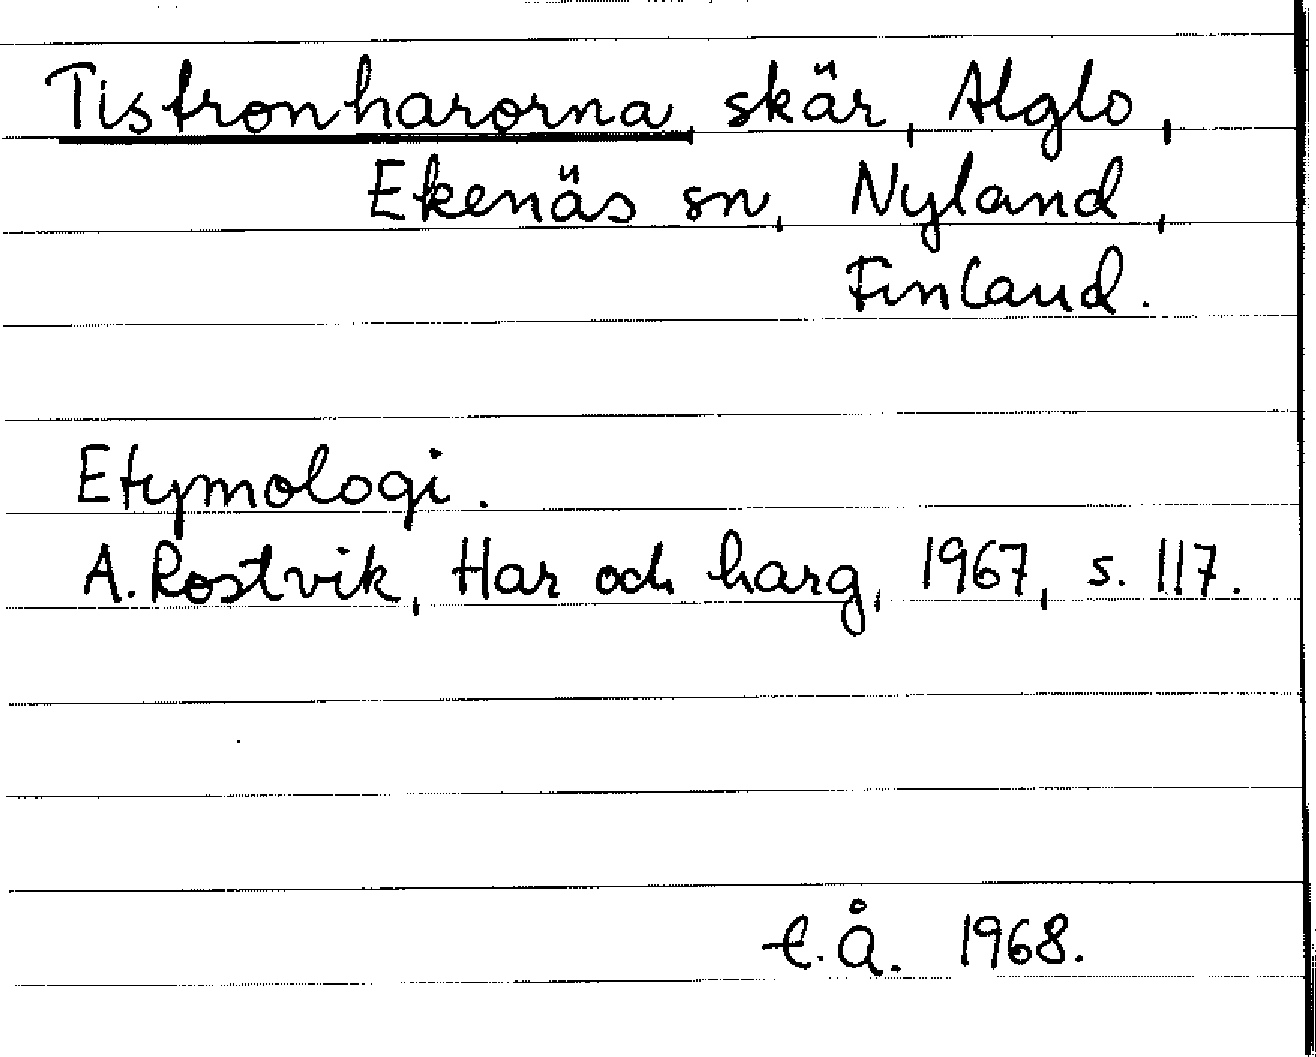 Tistronharorna, skär, Alglo,
Ekenäs sn, Nyland,
Finland.
Etymologi.
A. Rostvik, Har och harg, 1967, s. 117.
E.Å. 1968.